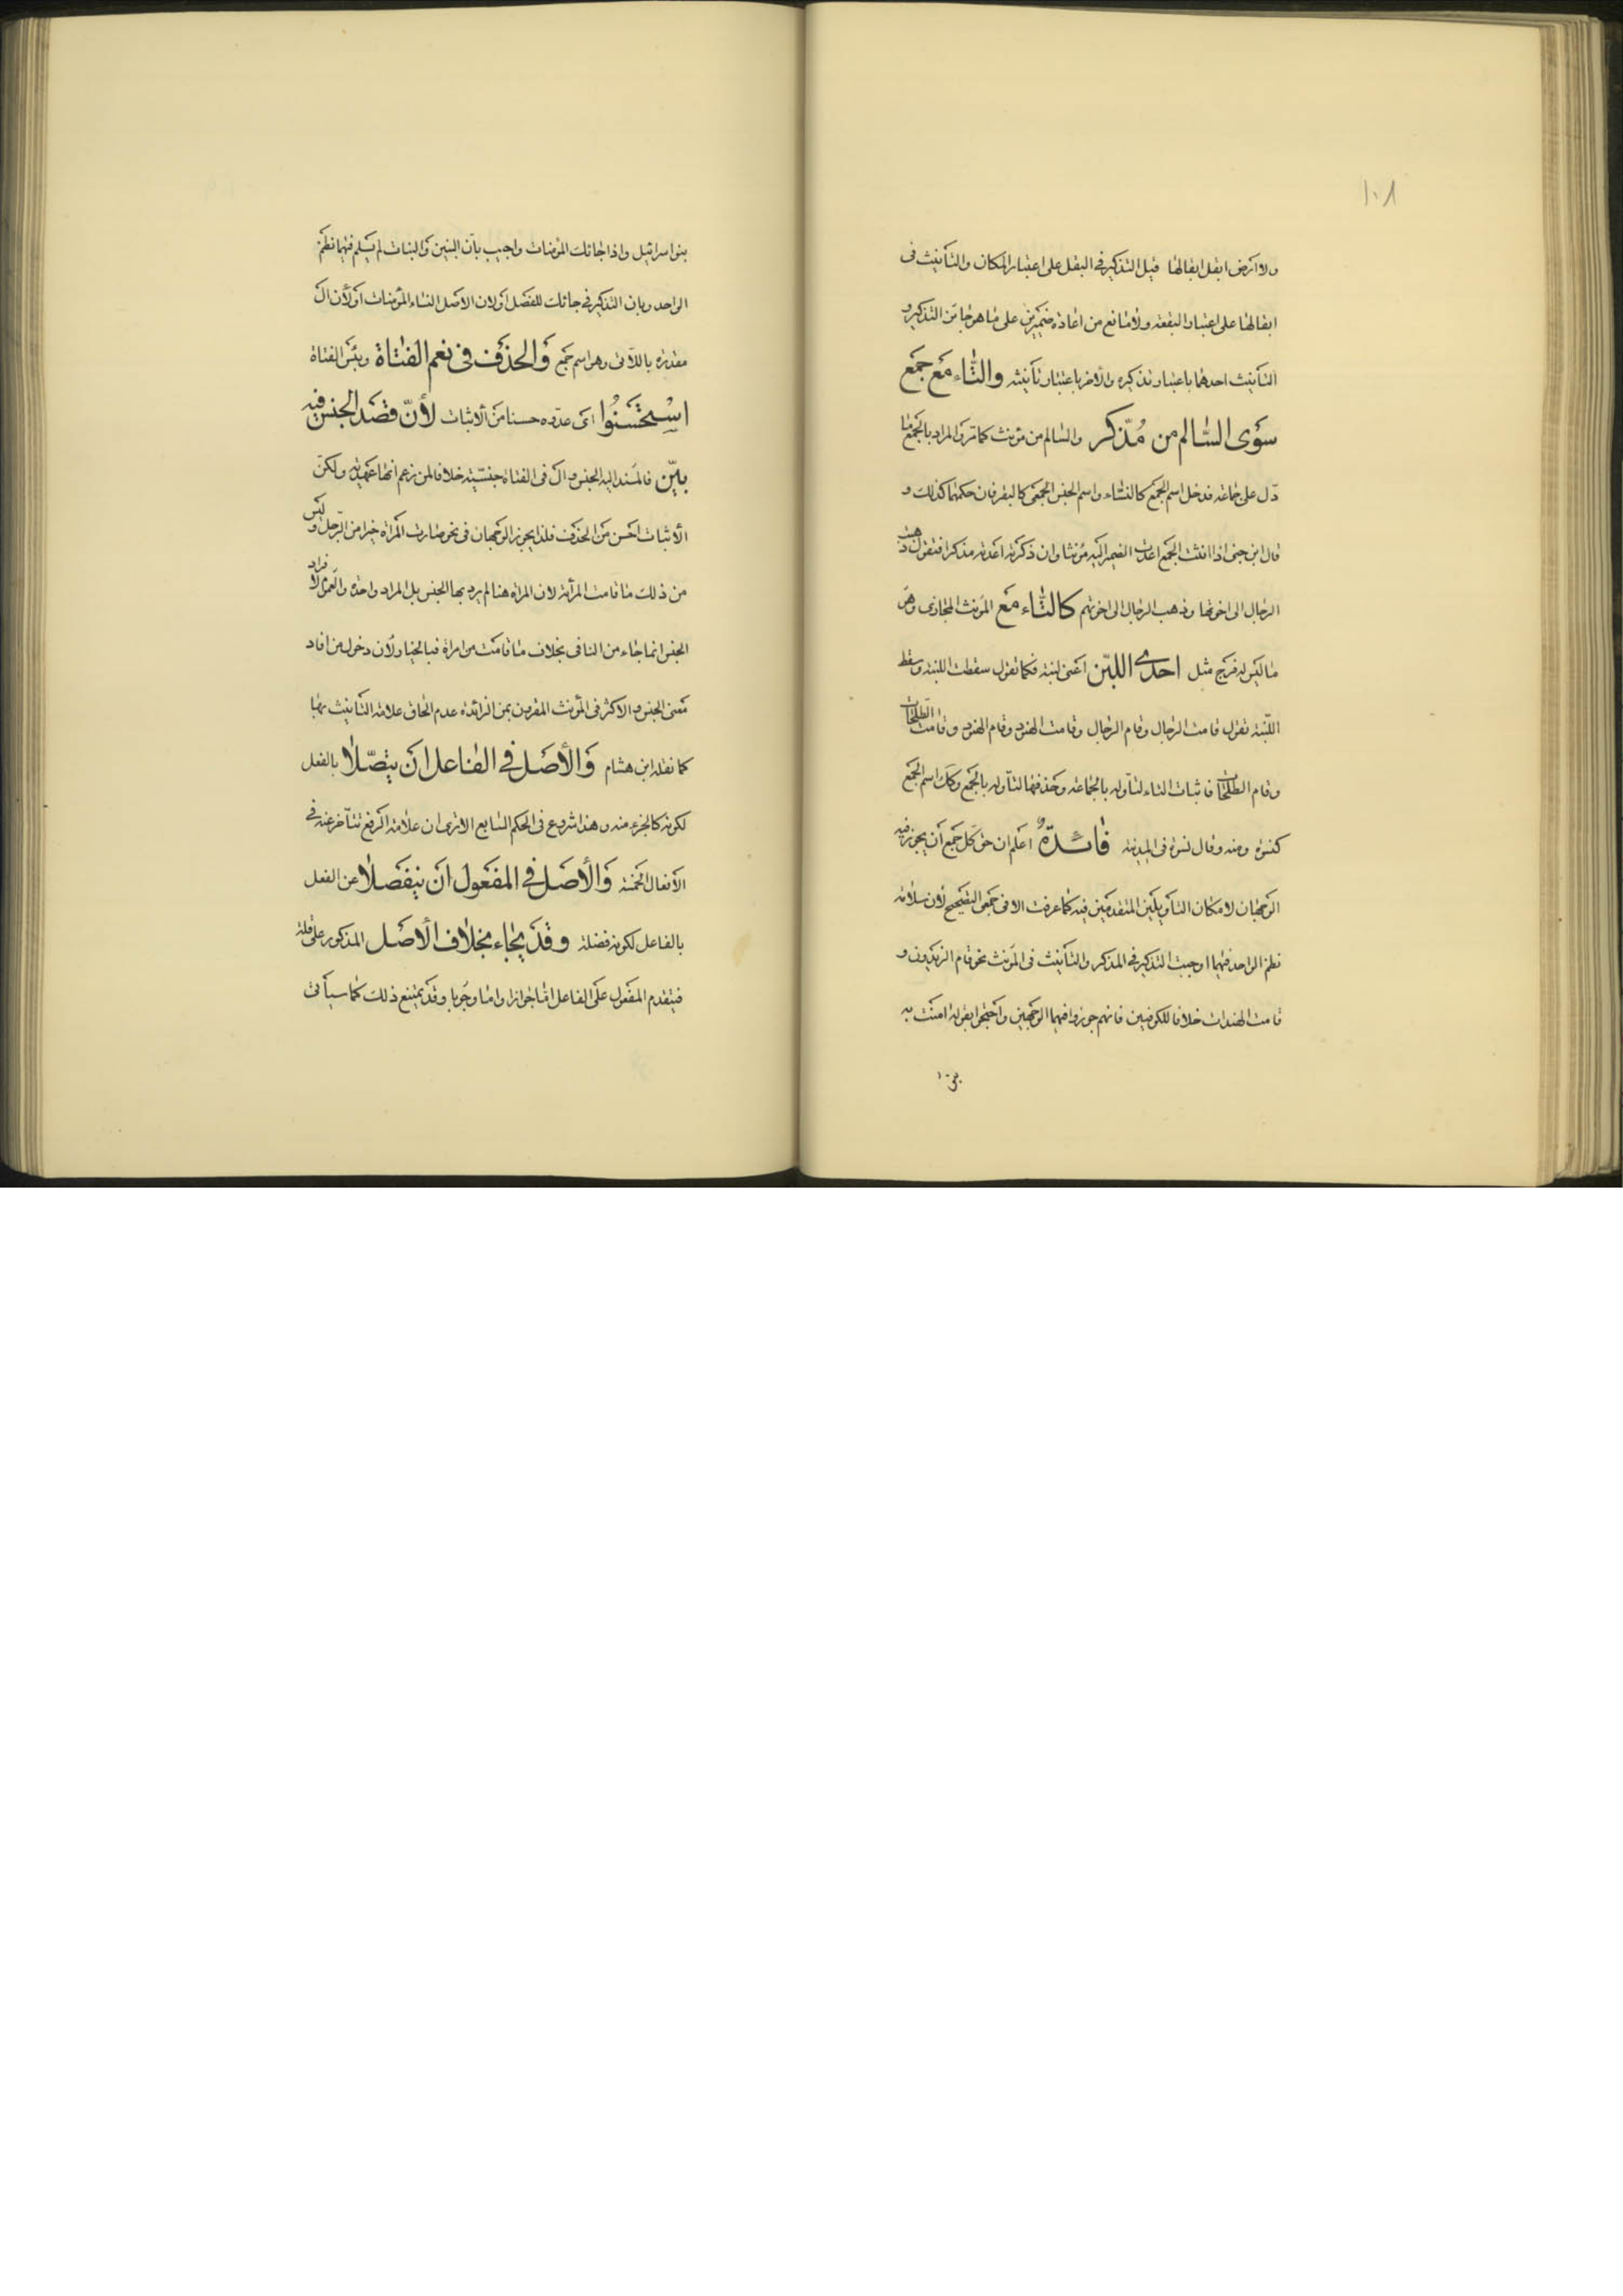 ١٠٨
ولا ارض ابقل ابقالها قيل التذكير في ابقل على اعتبار المكان والتأنيث فى
ابقالها على اعتبار البقعة ولا مانع من اعادة ضميرين على ما هو جائز التذكير و
التأنيث احدهما باعتبار تذكيره والاخر باعتبار تأنيثه والتّاء مع جمع
سوى السّالم من مُذّكر والسالم من مؤنث كما مرّ والمراد بالجمع ما
دلّ على جماعة فدخل اسم الجمع كالنساء واسم الجنس الجمعى كالبقر فان حكمهما كذلك و
قال ابن جنى اذا انثت الجمع اعدت الضمير اليه مؤنثا وان ذكرته اعدته مذكرا فتقول ذهبت
الرجال الى اخوتها وذهب الرجال الى اخوتهم كالتّاء مع المؤنث المجازى وهو
ما ليس له فرج مثل احدى اللبّن اعنى لبنة فكما تقول سقطت اللبنة وسقط
اللّبنة تقول قامت الرجال وقام الرجال وقامت الهنود وقام الهنود وقامت الطّلحات
وقام الطلحات فاثبات التاء لتأوله بالجماعة وحذفها لتأوله بالجمع وكك اسم الجمع
كنسوة ومنه وقال نسوة فى المدينة فائدةٌ اعلم ان حق كل جمع ان يجوز فيه
الوجهان لامكان التأويلين المتقدمين فيه كما عرفت الا فى جمعى التصحيح لأن سلامة
نظم الواحد فيهما اوجبت التذكير في المذكر والتأنيث فى المؤنث نحو قام الزيدون و
قامت الهندات خلافا للكوفيين فانهم جوزوا فيهما الوجهين واحتجوا بقوله امنت به
بنو
بنوا سرائيل واذا جائك المؤمنات واجيب بأن البنين والبنات لم يسلم فيهما نظم
الواحد وبان التذكير في جائك للفصل او لان الاصل النساء المؤمنات او لأن ال
مقدرة باللاتى وهو اسم جمع والحذف فى نعم الفتاة وبئس الفتاة
استحسَنُوا اى عدّوه حسنا من الاثبات لأنّ قصد الجنس فيه
بيّن فالمسند اليه الجنس وال فى الفتاة جنسّية خلافا لمن زعم انها عهدية ولكن
الاثبات احسن من الحذف فلذا يجوز الوجهان فى نحو صارت المرأة خيرا من الرّجل وليس
من ذلك ما قامت المرأة لان المرأة هنا لم يرد بها الجنس بل المراد واحدة والعموم لافراد
الجنس انما جاء من النافى بخلاف ما قامت من امرأة فبالخيار لأن دخول من افاد
معنى الجنس والاكثر فى المؤنث المقرون بمن الزائدة عدم الحاق علامة التأنيث بها
كما نقله ابن هشام والأصل في الفاعل ان يتصّلا بالفعل
لكونه كالجزء منه وهذا شروع فى الحكم السابع الا ترى ان علامة الرفع تتأخر عنه في
الافعال الخمسة والأصل في المفعول ان ينفصلا عن الفعل
بالفاعل لكونه فضلة وقد يجاء بخلاف الأصل المذكور على قلة
فيتقدم المفعول على الفاعل اما جوازا واما وجوبا وقد يمتنع ذلك كما سيأتى